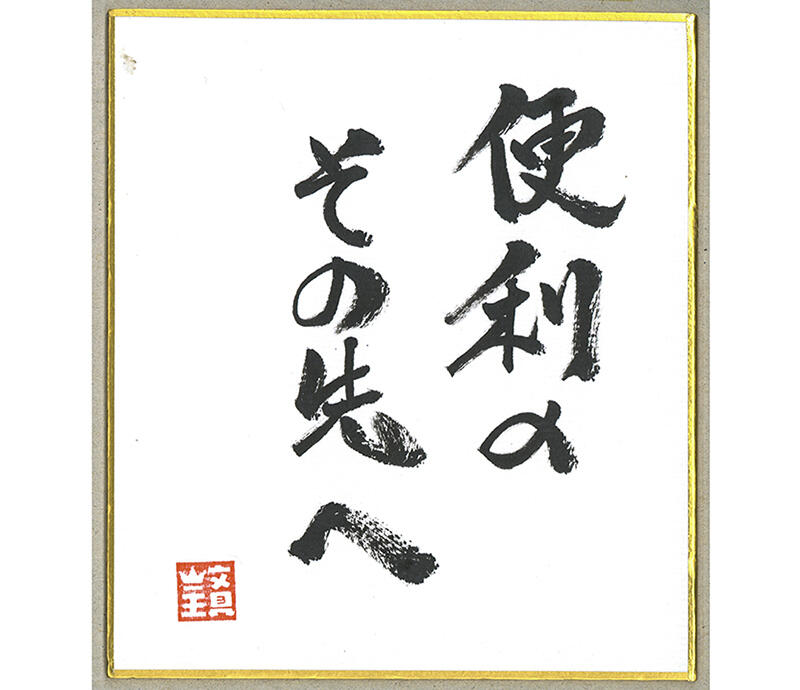 便利の
その先へ